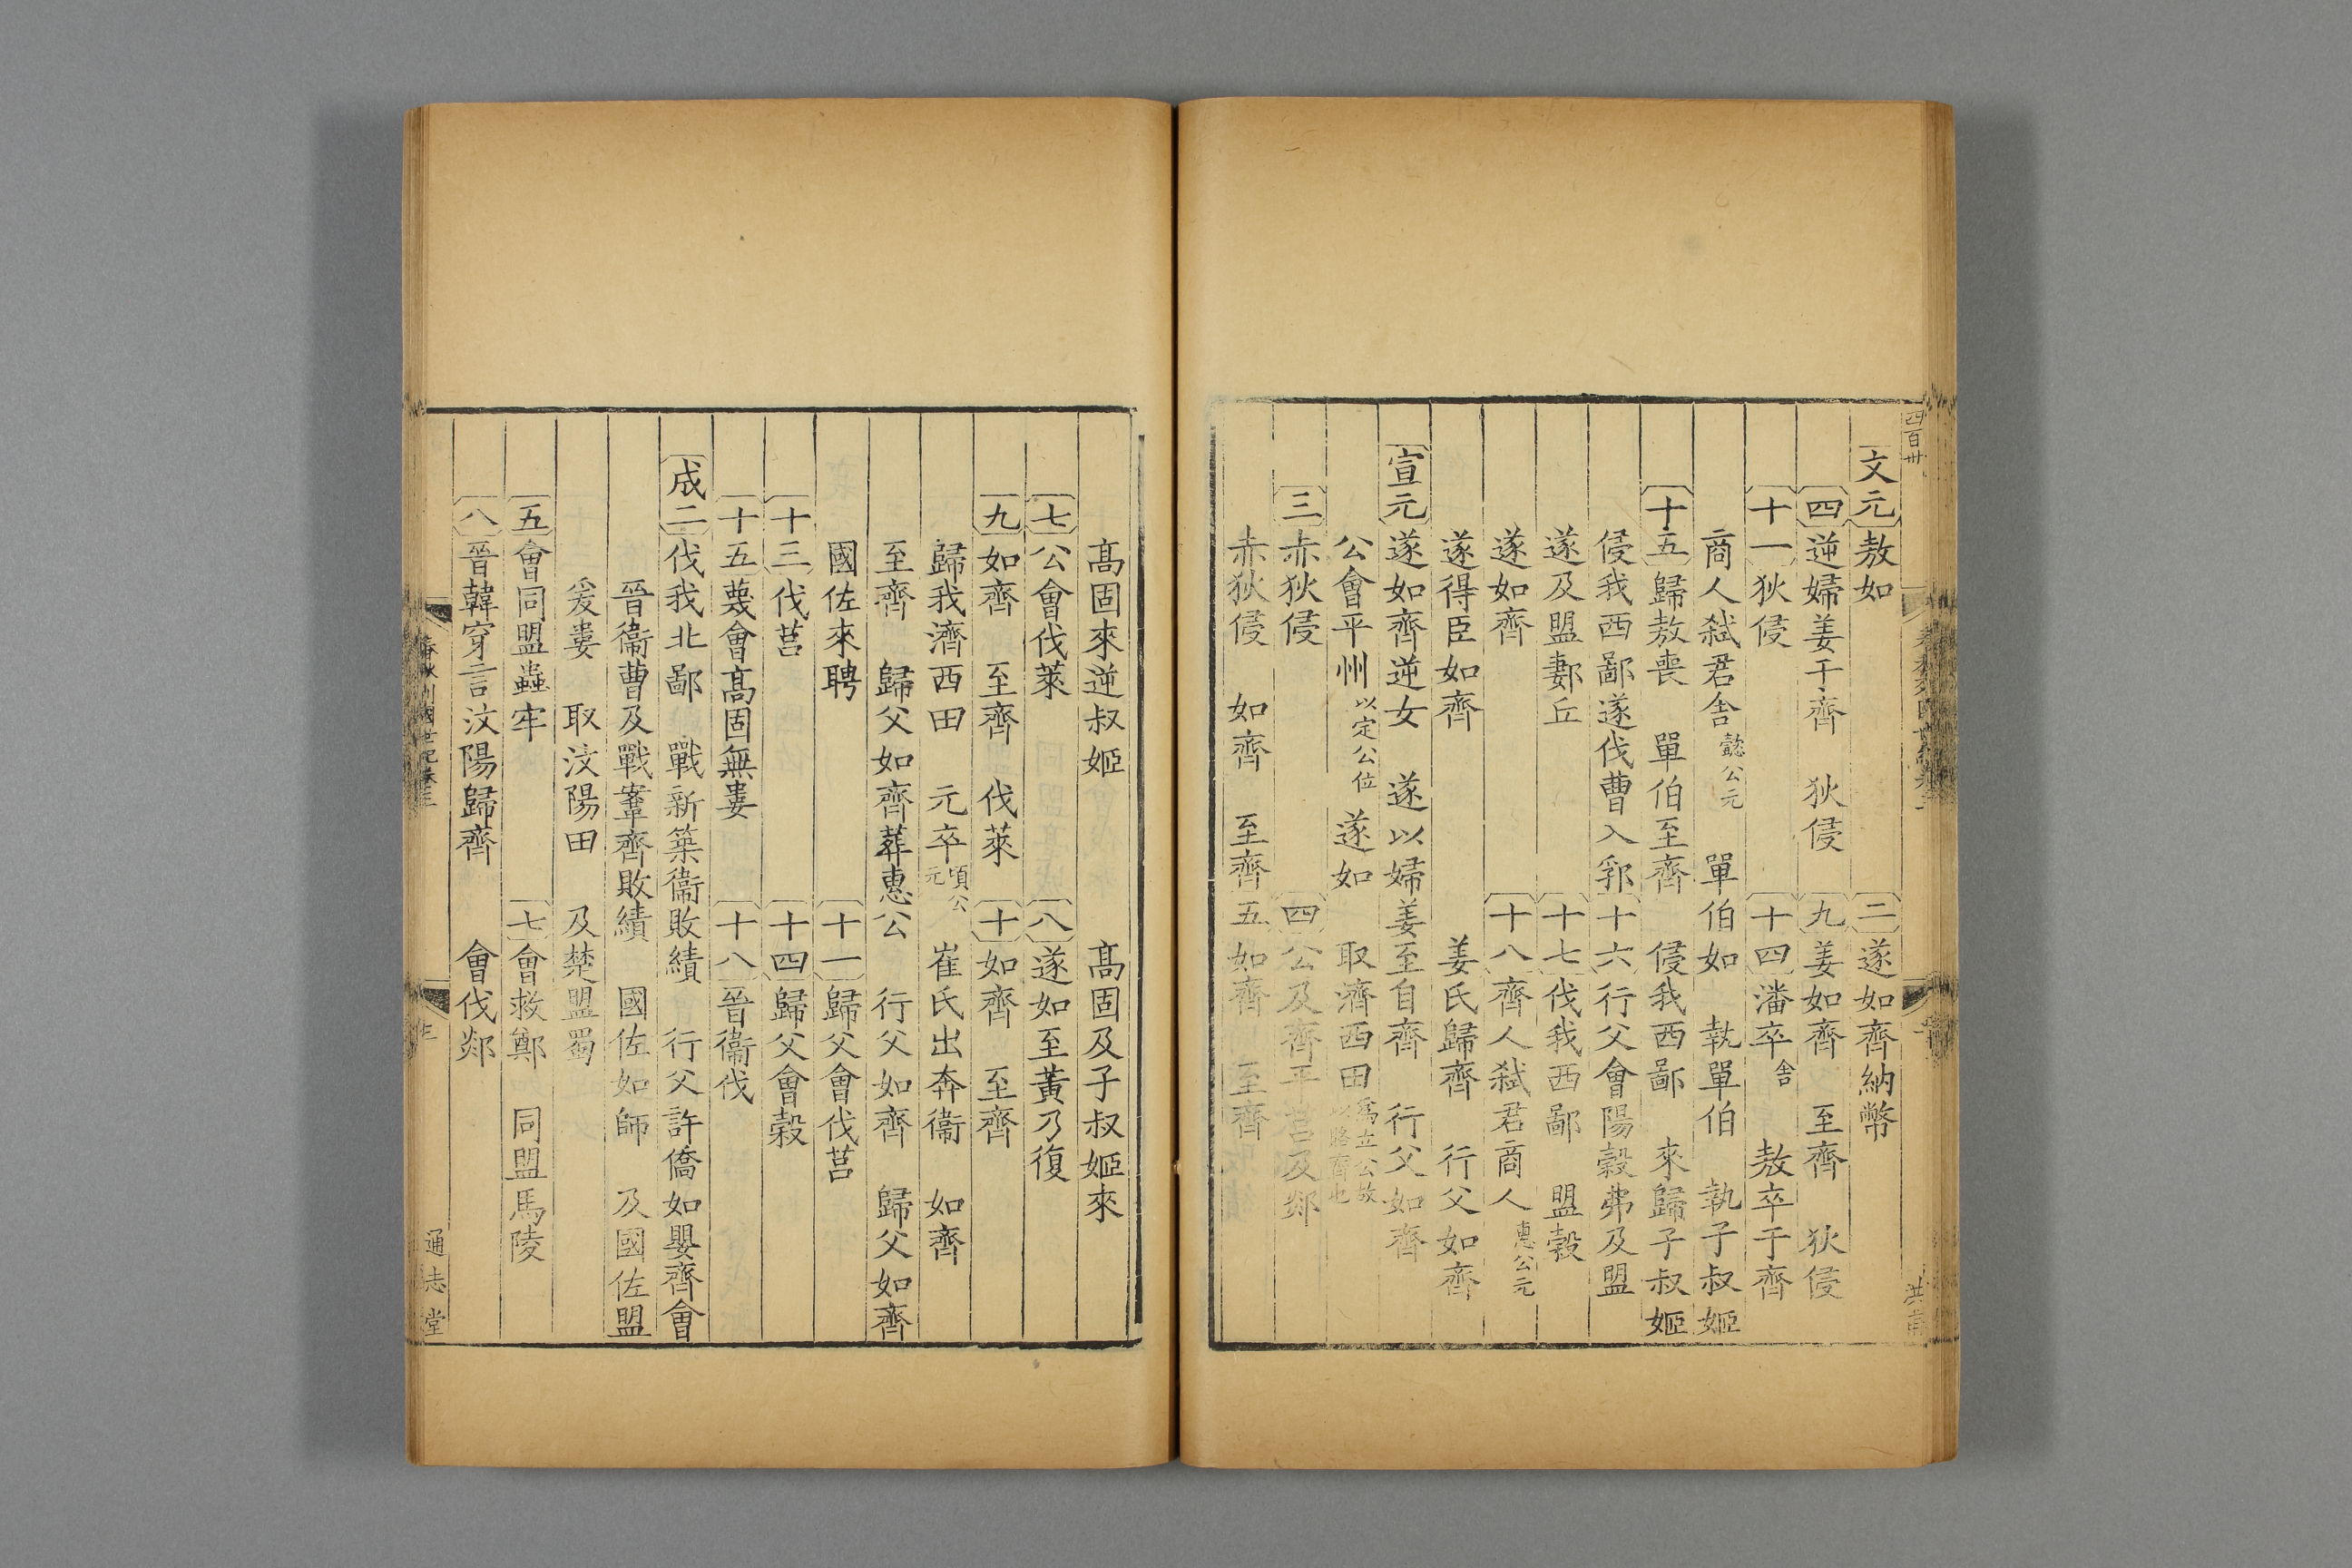 四百卅
文元敖如 二遂如齊納幣
四逆婦姜于齊 狄侵 九姜如齊 至齊 狄侵
十一狄侵 十四潘卒舍 敖卒于齊
商人弑君舍懿公元 單伯如 執單伯 執子叔姬
十五歸敖喪 單伯至齊 侵我西鄙 來歸子叔姬
侵我西鄙遂伐曹入郛 十六行父會陽穀弗及盟
遂及盟郪丘 十七伐我西鄙 盟穀
遂如齊 十八齊人弑君商人惠公元
遂得臣如齊 姜氏歸齊 行父如齊
宣元遂如齊逆女 遂以婦姜至自齊 行父如齊
公會平州以定公位 遂如 取濟西田爲立公故以賂齊也
三赤狄侵 四公及齊平莒及郯
赤狄侵 如齊 至齊 五如齊 至齊
高固來逆叔姬 高固及子叔姬來
七公會伐萊 八遂如至黃乃復
九如齊 至齊 伐萊 十如齊 至齊
歸我濟西田 元卒頃公元 崔氏出奔衞 如齊
至齊 歸父如齊葬惠公 行父如齊 歸父如齊
國佐來聘 十一歸父會伐莒
十三伐莒 十四歸父會穀
十五蔑會高固無婁 十八晉衞伐
成二伐我北鄙 戰新築衞敗績 行父許僑如嬰齊會
晉衞曹及戰鞌齊敗績 國佐如師 及國佐盟
爰婁 取汶陽田 及楚盟蜀
五會同盟蟲牢 七會救鄭 同盟馬陵
八晉韓穿言汶陽歸齊 會伐郯
春秋列國世紀卷三
通志堂